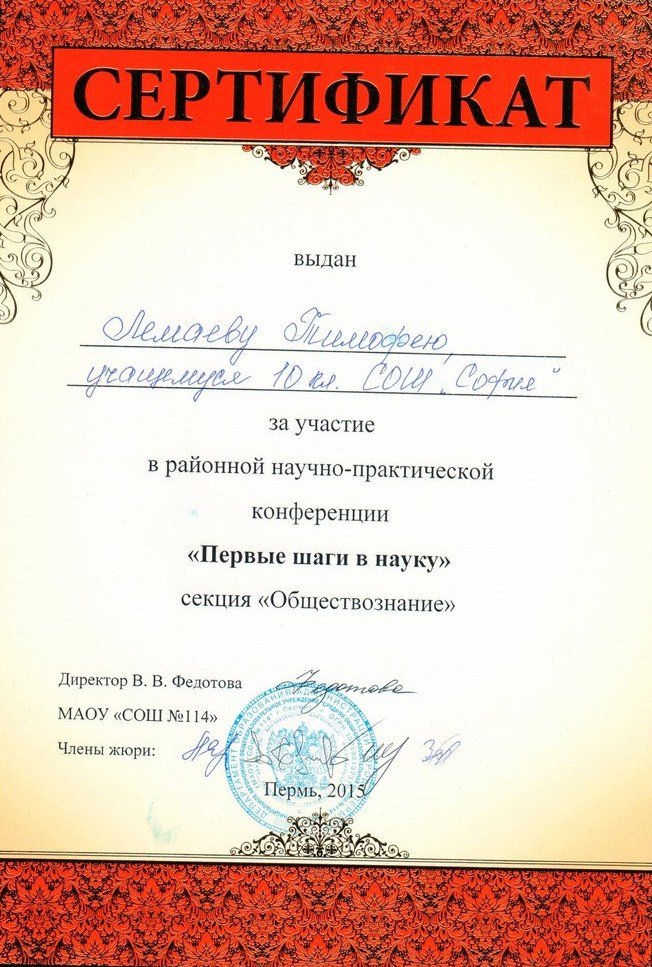 СЕРТИФИКАТ
выдан
Лемаеву Тимофею,
учащемуся 10 кл. СОШ „София"
за участие
в районной научно-практической
конференции
«Первые шаги в науку»
секция «Обществознание»
Директор В. В. Федотова
МАОУ «СОШ №114»
Члены жюри:
Пермь, 2015